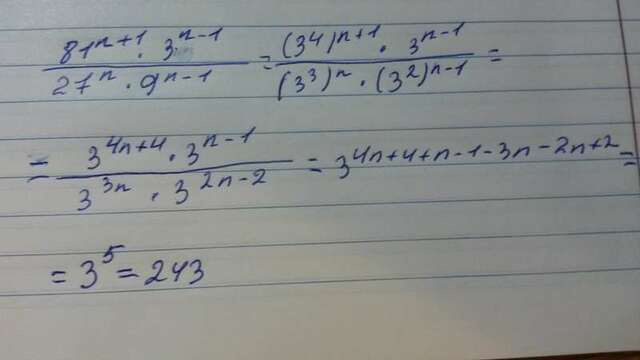 81^{n+1} · 3^{n-1} / 27^{n} · 9^{n-1} = (3^4)^{n+1} · 3^{n-1} / (3^3)^n · (3^2)^{n-1} =
= 3^{4n+4} · 3^{n-1} / 3^{3n} · 3^{2n-2} = 3^{4n+4+n-1-3n-2n+2} =
= 3^5 = 243